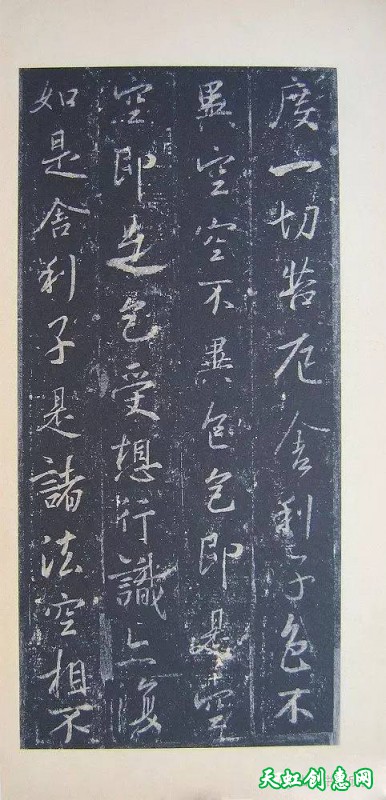 度一切苦厄舍利子色不
異空空不異色色即是空
空即是色受想行識亦復
如是舍利子是諸法空相不
天虹创惠网